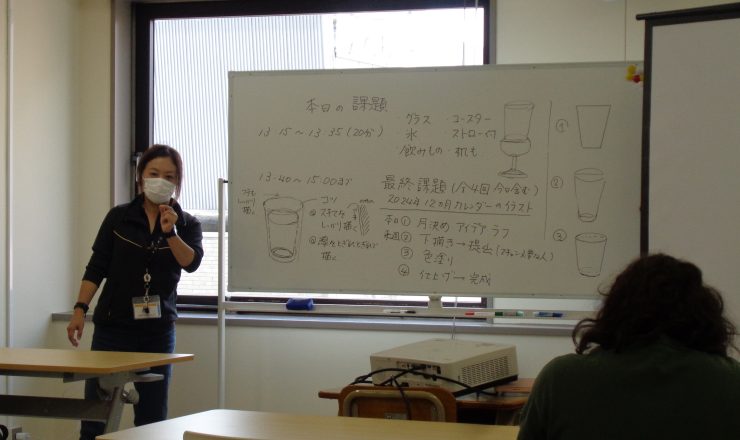 本日の課題
13:15〜13:35(20分)
・グラス ・コースター
・氷 ・ストロー
・飲みもの ・机も
13:40〜15:00まで
最終課題(全4回 今日含む)
2024年12カ月カレンダーのイラスト
本日① 月決め アイデア ラフ
② 下描き→提出
③ 色塗り
④ 仕上げ→完成
フチも
しっかり
描く
コツ
しっかり描く
描く
①
②
③